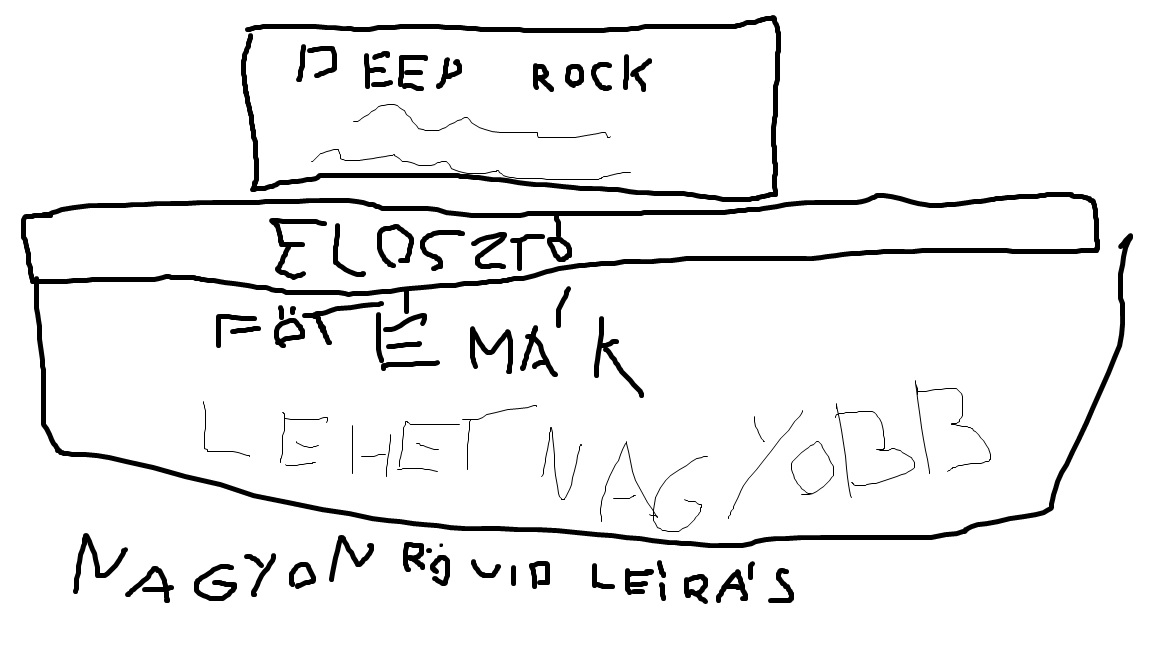 DEEP ROCK
ELOSZTÓ
FŐTÉMÁK
LEHET NAGYOBB
NAGYON RÖVID LEÍRÁS